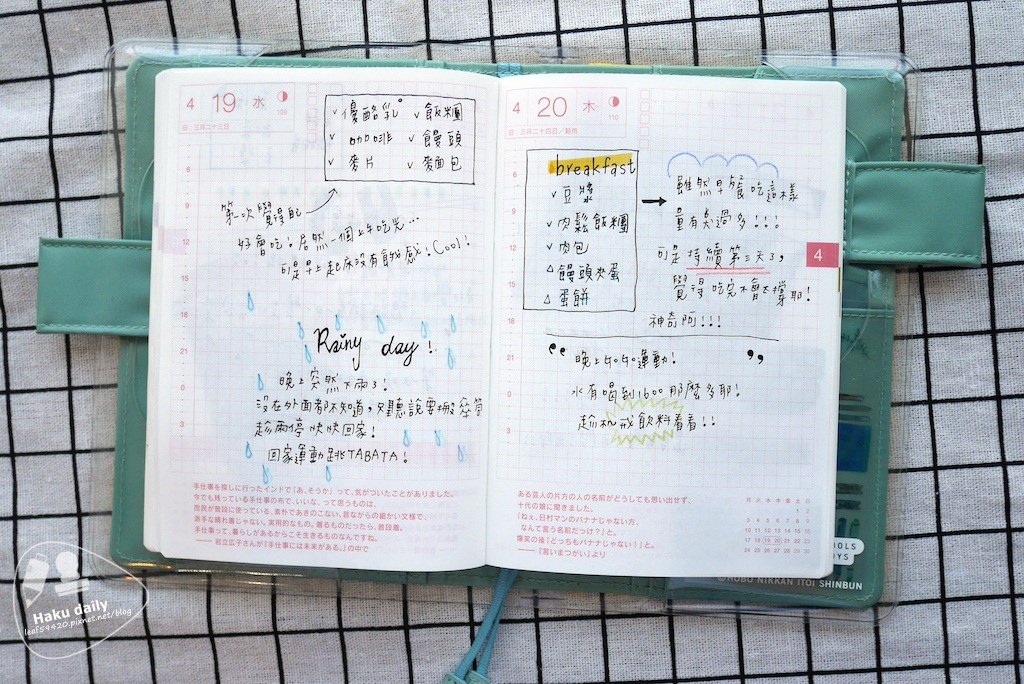 4 19 水
108
旧 三月二十三日
✓優酪乳 ✓飯糰
✓咖啡 ✓饅頭
✓麥片 ✓麵包
6
9
12
15
18
21
0
3
第 次覺得自己
好會吃!居然一個上午吃光...
可是早上起床沒有餓感!Cool!
Rainy day!
晚上突然下雨了!
沒在外面都不知道,只聽說要
趁雨停快快回家!
回家運動跳TABATA!
手仕事を探しに行ったインドで「あ、そうか」って、気がついたことがありました。
今でも残っている手仕事の布で、いいな、って思うものは、
庶民が普段に使っている、素朴であきのこない、昔ながらの細かい文様で、
派手な晴れ着じゃない。実用的なもの。着るものだったら、普段着。
手仕事って、暮らしがあるからこそ生きるものなんですね。
——岩立広子さんが『手仕事には未来がある。』の中で
4 20 木
110
旧 三月二十四日/穀雨
6
9
12
15
18
21
0
3
breakfast
✓豆漿
✓肉鬆飯糰
✓肉包
△饅頭夾蛋
△蛋餅
→
雖然早餐吃這樣
量有點過多!!!
可是持續第三天了,
覺得吃完不會太撐耶!
神奇阿!!!
4
晚上ㄘㄘ運動!
水有喝到1600那麼多耶!
趁機戒飲料看看!!
ある芸人の片方の人の名前がどうしても思い出せず、
十代の娘に聞きました。
「ねぇ、日村マンのバナナじゃない方、
なんて言う名前だっけ?」と。
爆笑の後「どっちもバナナじゃない!」と。
——『言いまつがい』より
月 火 水 木 金 土 日
1 2
3 4 5 6 7 8 9
10 11 12 13 14 15 16
17 18 19 20 21 22 23
24 25 26 27 28 29 30
©HOBO NIKKAN ITOI SHINBUN
Haku daily
leaf59420.pixnet.net/blog